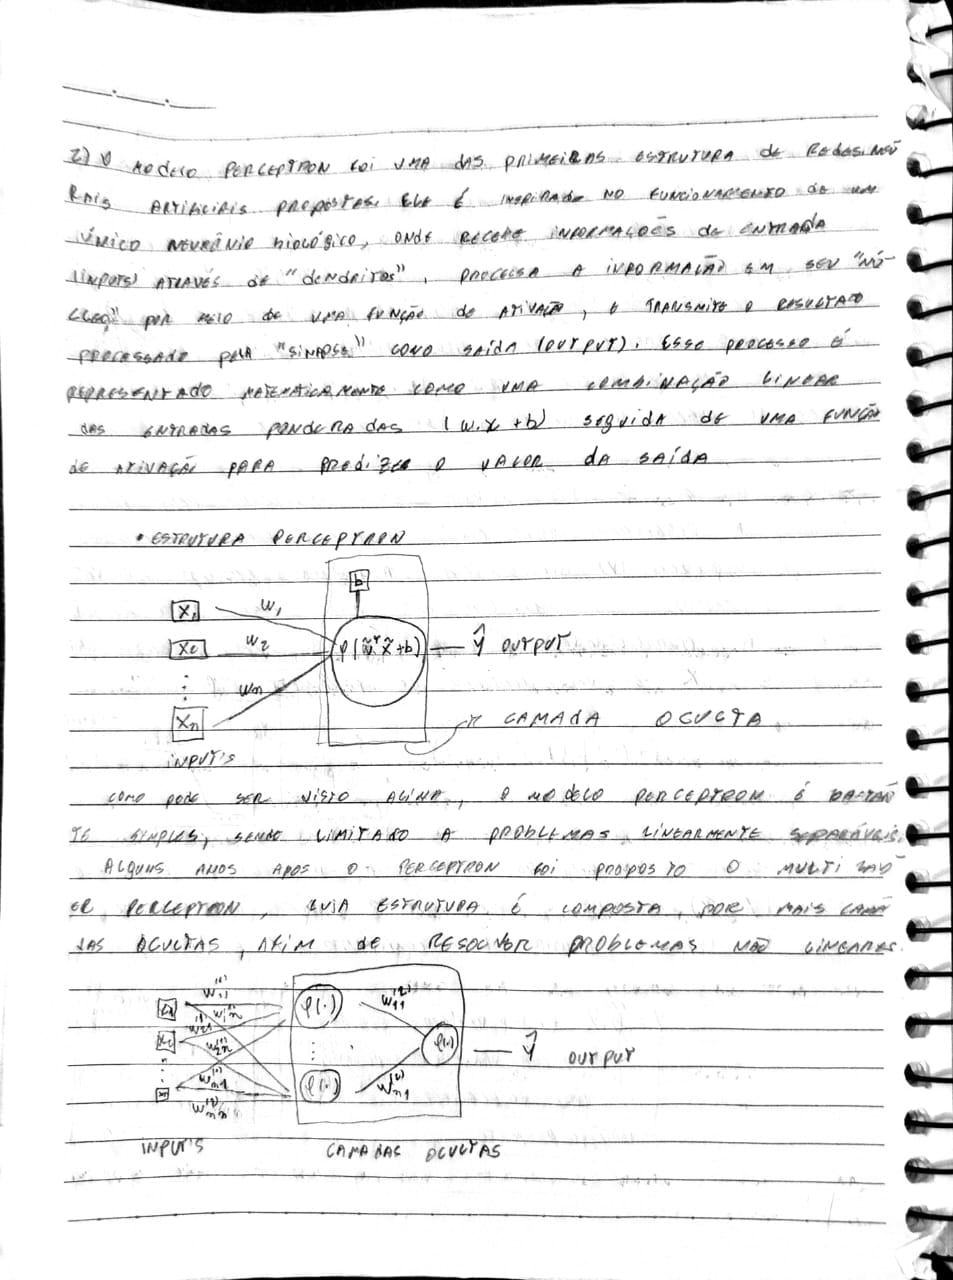 2) O MODELO PERCEPTRON FOI UMA DAS PRIMEIRAS ESTRUTURA DE REDES NEU
RAIS ARTIFICIAIS PROPOSTAS. ELE É INSPIRADO NO FUNCIONAMENTO DE UM
ÚNICO NEURÔNIO BIOLÓGICO, ONDE RECEBE INFORMAÇÕES DE ENTRADA
(INPUTS) ATRAVÉS DE "DENDRITOS", PROCESSA A INFORMAÇÃO EM SEU "NÚ
CLEO" POR MEIO DE UMA FUNÇÃO DE ATIVAÇÃO, E TRANSMITE O RESULTADO
PROCESSADO PELA "SINAPSE" COMO SAÍDA (OUTPUT). ESSE PROCESSO É
REPRESENTADO MATEMATICAMENTE COMO UMA COMBINAÇÃO LINEAR
DAS ENTRADAS PONDERADAS (W.X + b) SEGUIDA DE UMA FUNÇÃO
DE ATIVAÇÃO PARA PREDIZER O VALOR DA SAÍDA
• ESTRUTURA PERCEPTRON
b
X1 W1
X2 W2 φ(w̃ᵀx̃+b) ŷ OUTPUT
⋮ Wn
Xn CAMADA OCULTA
INPUT'S
COMO PODE SER VISTO ACIMA, O MODELO PERCEPTRON É BASTAN
TE SIMPLES, SENDO LIMITADO A PROBLEMAS LINEARMENTE SEPARÁVEIS.
ALGUNS ANOS APOS O PERCEPTRON FOI PROPOSTO O MULTI LAY
ER PERCEPTRON, CUJA ESTRUTURA É COMPOSTA POR MAIS CAMA
DAS OCULTAS, AFIM DE RESOLVER PROBLEMAS NÃO LINEARES.
W11⁽¹⁾ φ(·) W11⁽²⁾
W1n⁽¹⁾
W21⁽¹⁾
W2n⁽¹⁾ φ(·) ŷ OUTPUT
Wn1⁽¹⁾ φ(·) Wn1⁽²⁾
Wnn⁽¹⁾
INPUT'S CAMADAS OCULTAS